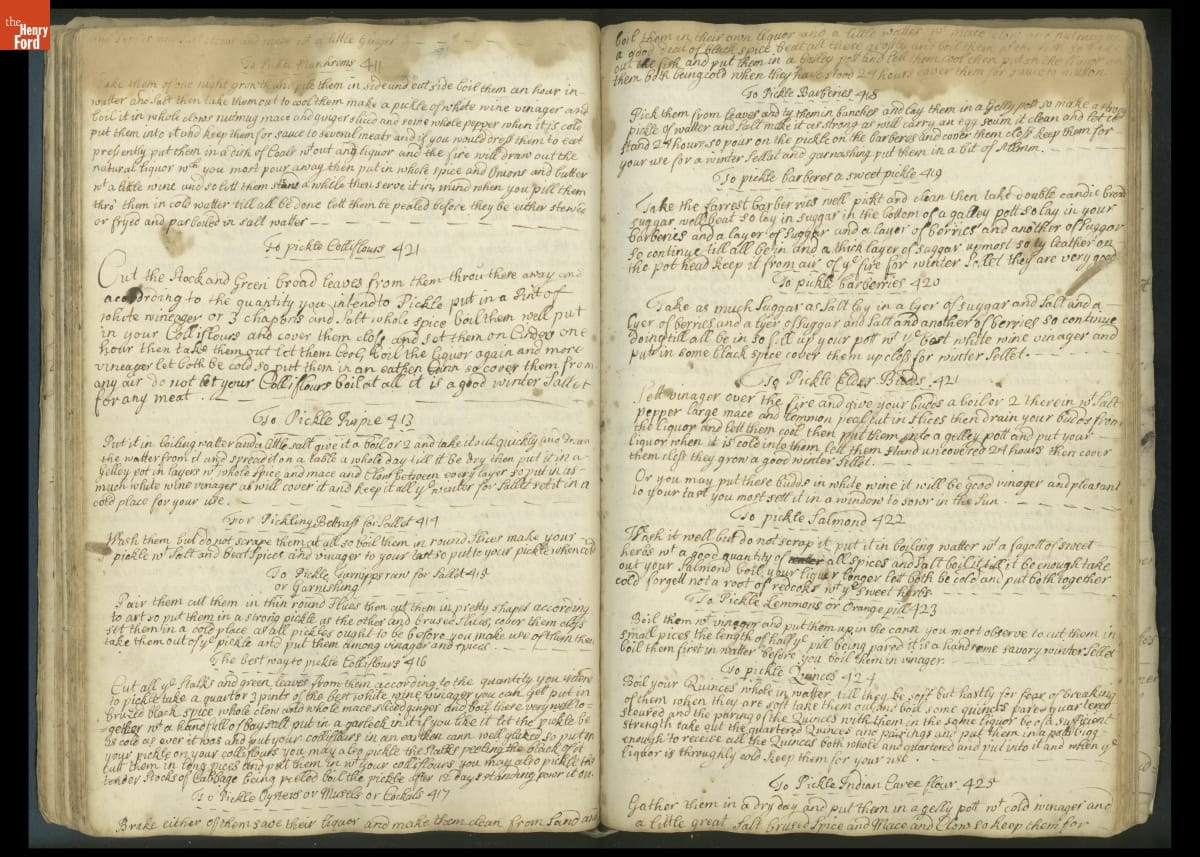 the
Henry
Ford
and a little Ginger
To Pickle Mushroms 411
Take them of one night growth and pile them in side and out side boil them an hour in
watter and salt then take them out to cool them make a pickle of white wine vinager and
boil it in whole clows nutmug mace and ginger sliced and some whole pepper when it is cold
put them into it and keep them for sauce to severall meats and if you would dress them to eat
presently put them in a dish of Coals wt out any liquor and the fire will draw out the
natural liquor wch you most pour away then put in whole spice and Onions and butter
wt a little wine and so lett them stand a while then serve it in, mind when you pill them
thro' them in cold watter till all be done lett them be pealed before they be either stewed
or fryed and parboiled in salt watter
To pickle Colliflours 421
Cut the stock and Green broad leaves from them throu there away and
according to the quantity you intend to Pickle put in a Pint of
white wineager or 3 chapons and salt whole spice boil them well put
in your Colliflours and cover them closs and set them on Cinders one
hour then take them out let them cool, boil the liquor again and more
vineager let both be cold so put them in an eathen Cann so cover them from
any air do not let your Colliflours boil at all it is a good winter Sallet
for any meat
To Pickle Purpie 413
Put it in boiling watter and a little salt give it a boil or 2 and take it out quickly and drain
the watter from it and spread it on a table a whole day till it be dry then put it in a
Gelley pot in layers wt whole spice and mace and Clow between every layer so put in as
much white wine vinager as will cover it and keep it all ye winter for Sallet set it in a
cold place for your use
For Pickling Bettraff for Sallet 414
Wash them but do not scrape them at all so boil them in round slices make your
pickle wt Salt and beat spices and vinager to your tast so put to your pickle when cold
To Pickle Turnyps raw for Sallet 415
or Garnishing
Pair them cutt them in thin round slices then cut them in pretty shapes according
to art so put them in a strong pickle as the other and brused slices, cober them closs
set them in a cold place as all pickles ought to be before you make use of them then
take them out of ye pickle and put them among vinagar and spices
The best way to pickle Colliflours 416
Cut all ye stalks and green leaves from them according to the quantity you intend
to pickle take a quart or 3 pints of the best white wine vinager you can get put in
bruzed black spice whole clow cold whole mace sliced ginger and boil there very well to=
=gether wt a handfull of bay salt put in a garleek in it if you like it let the pickle be
as cold as ever it was and put your colliflours in an earthen cann well glazed so put in
your pickle on your colliflours you may also pickle the stalks peeling the black of it
cutt them in long pices and pott them in wt your colliflours you may also pickle the
tender stocks of Cabbage being peeled boil the pickle after 12 days standing powr it on
To Pickle Oysters or Musels or Cockals 417
Brake either off them save their liquor and make them clean from sand and
boil them in their own liquor and a little watter wt mace clow and nutmug
a good deal of black spice beat all these grosly and boil them
out the fish and put them in a Galley pott and lett them cool then put on the liquor on
them both being cold when they have stood 24 hours cover them for sauce to mutton
To Pickle Barberies 418
Pick them from leaves and ty them in bunches and lay them in a Gelly pott so make a strong
pickle of watter and salt make it as strong as will carry an egg scum it clean and let it
stand 24 hours so pour on the pickle on the barberes and cover them closs keep them for
your use for a winter Sellat and garnashing put them in a bit of Allum.
To pickle barberer a sweet pickle 419
Take the farrest barberries well pickt and clean then take double candit broad
suggar well beat so lay in suggar in the bottom of a galley pott so lay in your
barberies and a layer of suggar and a layer of berries and another of suggar
so continue till all be in and a thick layer of suggar upmost so ty leather on
the pot head keep it from air of ye fire for winter Sollet they are very good
To pickle barberies 420
Take as much suggar as salt lay in a lyer of suggar and salt and a
lyer of berries and a lyer of suggar and salt and another of berries so continue
doing till all be in so fill up your pott wt ye best white wine vinager and
put in some black spice cover them up closs for winter Sellet.
To Pickle Elder Budds 421
Sett vinager over the fire and give your budds a boil or 2 therein wt salt
pepper large mace and lemmon peal cut in slices then drain your budds from
the liquor and lett them cool then put them into a gelley pott and put your
liquor when it is cold into them lett them stand uncovered 24 hours then cover
them closs they grow a good winter Sellet.
Or you may put these budds in white wine it will be good vinager and pleasant
to your tast you most set it in a window to sowr in the sun.
To pickle Salmond 422
Wash it well but do not scrap it put it in boiling watter wt a fagott of sweet
herbs wt a good quantity of all spices and salt boil it till it be enough take
out your Salmond boil your liquor longer lett both be cold and put both together
cold forgett not a root of redcoks wt ye sweet herbs
To Pickle Lemmons or Orange pill 423
Boil them wt vinager and put them up in the cann you most observe to cut them in
small pices the length of half ye pill being pared it is a handsome savory winter Sellet
boil them first in watter before you boil them in vinager.
To pickle Quinces 424
Boil your Quinces whole in watter till they be soft but hastly for fear of breaking
of them when they are soft take them out and boil some quinces pared quartered
steured and the paring of the Quinces with them in the same liquor be of a sufficient
strength take out the quartered Quinces and pairings and put them in a pott bigg
enough to receive all the Quinces both whole and quartered and put into it and when ye
liquor is throughly cold keep them for your use.
To Pickle Indian Caree flour 425
Gather them in a dry day and put them in a gelly pott wt cold winager and
a little great salt brused spice and Mace and Clow so keep them for